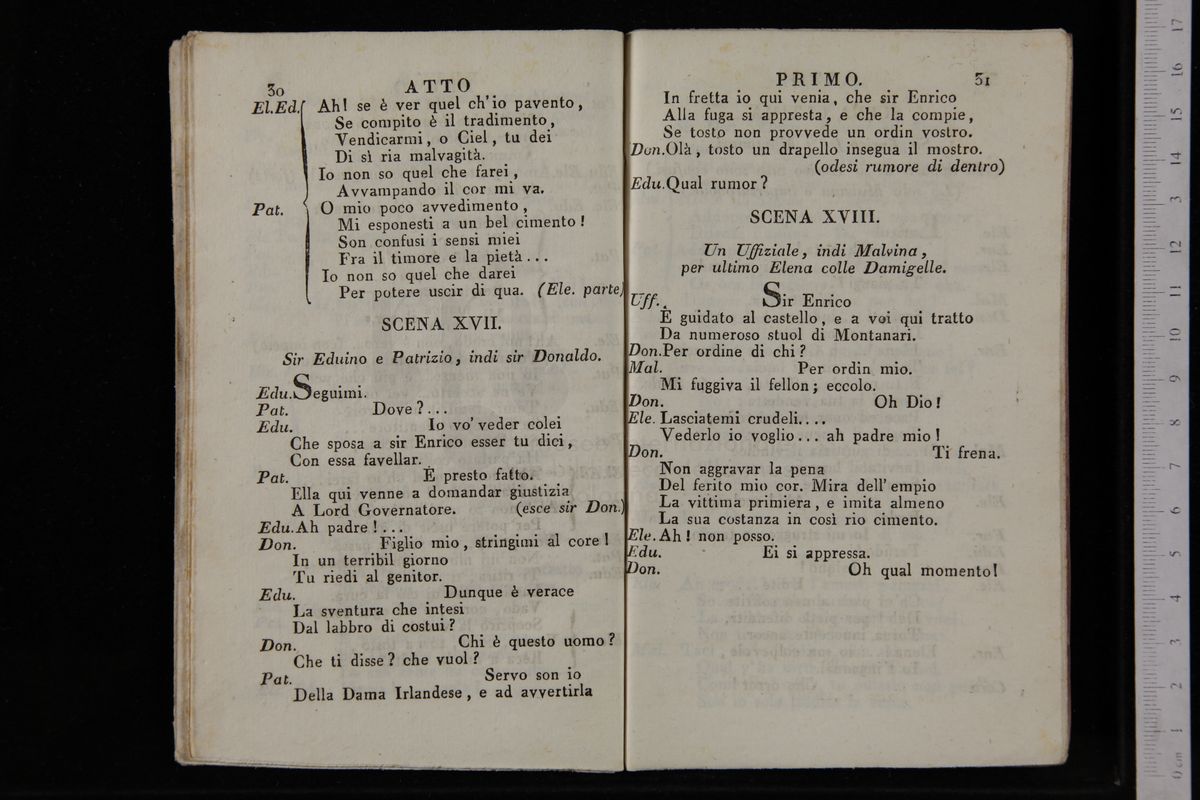 30 ATTO
El.Ed. Ah! se è ver quel ch'io pavento,
Se compito è il tradimento,
Vendicarmi, o Ciel, tu dei
Di sì ria malvagità.
Io non so quel che farei,
Avvampando il cor mi va.
Pat. O mio poco avvedimento,
Mi esponesti a un bel cimento!
Son confusi i sensi miei
Fra il timore e la pietà...
Io non so quel che darei
Per potere uscir di qua. (Ele. parte)
SCENA XVII.
Sir Eduino e Patrizio, indi sir Donaldo.
Edu. Seguimi.
Pat. Dove?...
Edu. Io vo' veder colei
Che sposa a sir Enrico esser tu dici,
Con essa favellar.
Pat. È presto fatto.
Ella qui venne a domandar giustizia
A Lord Governatore. (esce sir Don.)
Edu. Ah padre!...
Don. Figlio mio, stringimi al core!
In un terribil giorno
Tu riedi al genitor.
Edu. Dunque è verace
La sventura che intesi
Dal labbro di costui?
Don. Chi è questo uomo?
Che ti disse? che vuol?
Pat. Servo son io
Della Dama Irlandese, e ad avvertirla
PRIMO. 31
In fretta io qui venia, che sir Enrico
Alla fuga si appresta, e che la compie,
Se tosto non provvede un ordin vostro.
Don. Olà, tosto un drapello insegua il mostro.
(odesi rumore di dentro)
Edu. Qual rumor?
SCENA XVIII.
Un Uffiziale, indi Malvina,
per ultimo Elena colle Damigelle.
Uff. Sir Enrico
È guidato al castello, e a voi qui tratto
Da numeroso stuol di Montanari.
Don. Per ordine di chi?
Mal. Per ordin mio.
Mi fuggiva il fellon; eccolo.
Don. Oh Dio!
Ele. Lasciatemi crudeli....
Vederlo io voglio... ah padre mio!
Don. Ti frena.
Non aggravar la pena
Del ferito mio cor. Mira dell' empio
La vittima primiera, e imita almeno
La sua costanza in così rio cimento.
Ele. Ah! non posso.
Edu. Ei si appressa.
Don. Oh qual momento!
0 cm 1 2 3 4 5 6 7 8 9 10 11 12 13 14 15 16 17